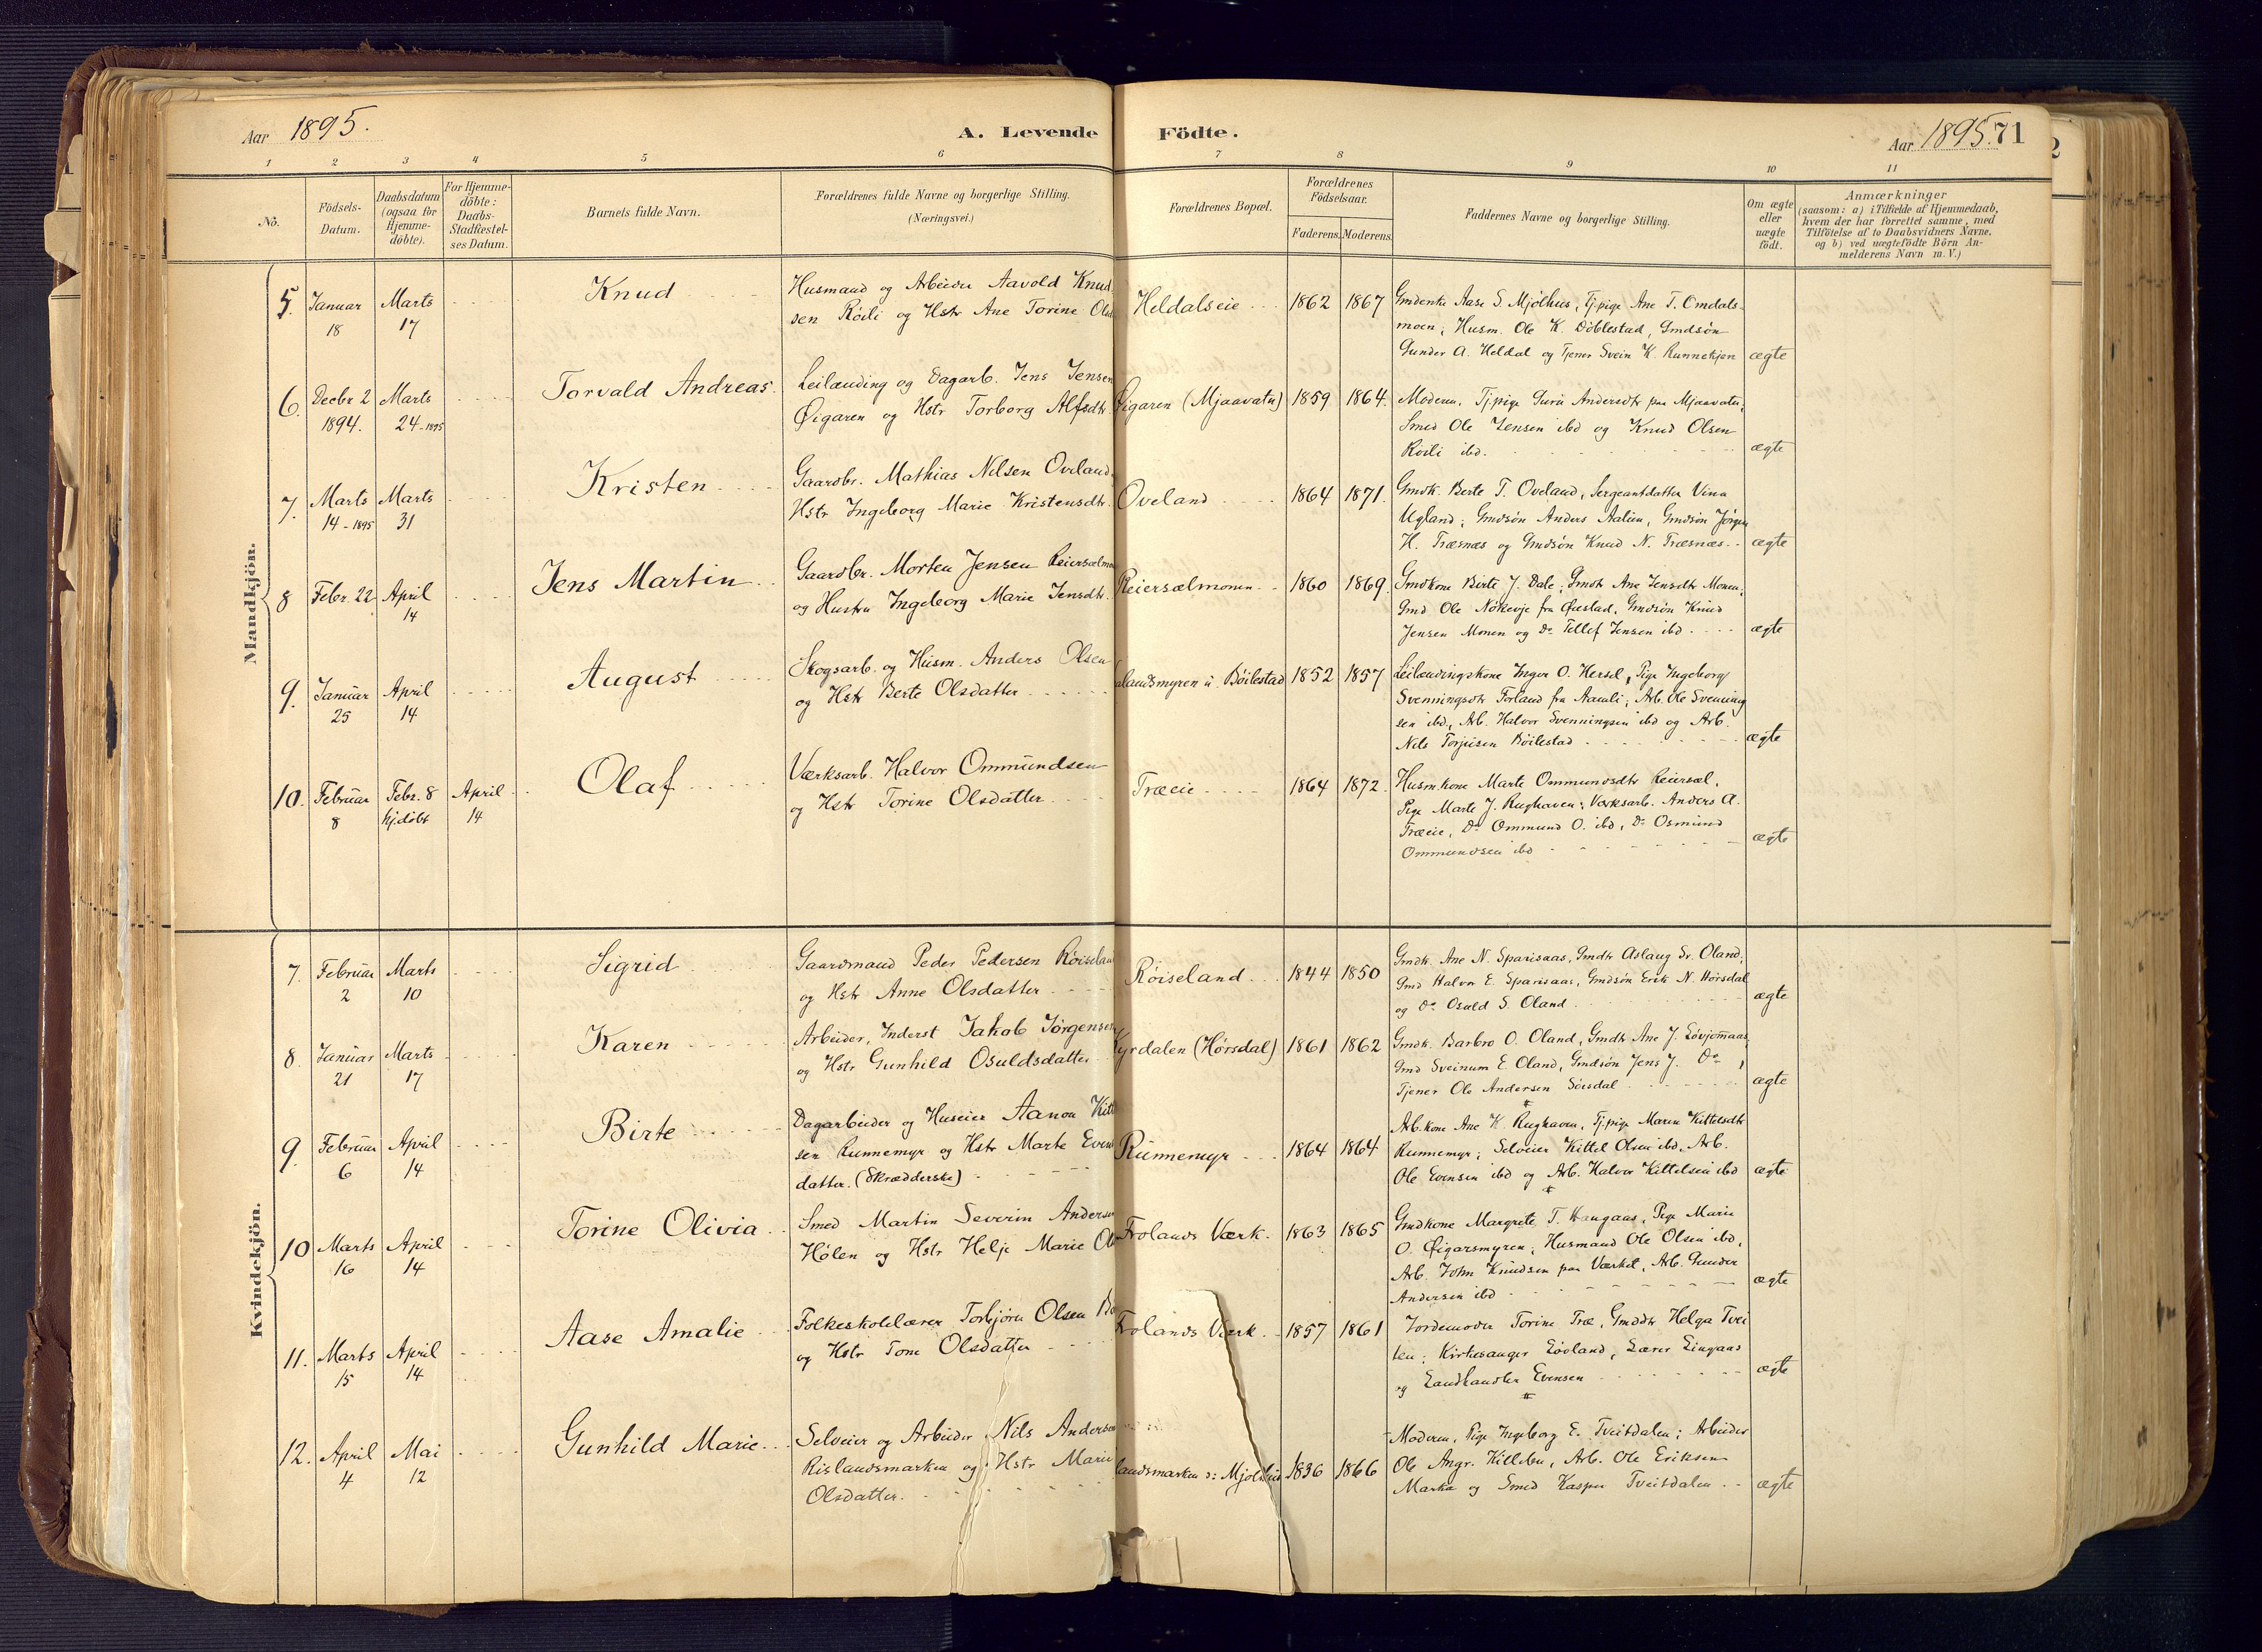 Aar 1895.
A. Levende Födte.
Aar 1895. 71
1 2 3 4 5 6 7 8 9 10 11
No.
Födsels-
Datum.
Daabsdatum
(ogsaa for
Hjemme-
döbte).
For Hjemme-
döbte:
Daabs-
Stadfæstel-
ses Datum.
Barnets fulde Navn.
Forældrenes fulde Navne og borgerlige Stilling.
(Næringsvei.)
Forældrenes Bopæl.
Forældrenes
Födselsaar.
Faderens. Moderens.
Faddernes Navne og borgerlige Stilling.
Om ægte
eller
uægte
födt.
Anmærkninger
(saasom: a) i Tilfælde af Hjemmedaab,
hvem der har forrettet samme, med
Tilföielse af to Daabsvidners Navne,
og b) ved uægtefödte Börn An-
melderens Navn m. V.)
Mandkjön.
5. Januar 18 Marts 17
Knud
Husmand og Arbeider Aavold Knud
sen Röili og Hstr Ane Torine Ols
Heldalseie
1862 1867
Gmdenke Aase S. Mjölhus, Tjpige Ane T. Omdals-
moen; Husm. Ole K. Döblestad, Gmdsön
Gunder A. Heldal og Tjener Svein K. Runnekjen
ægte
6. Decbr 2 1894. Marts 24-1895
Torvald Andreas
Leilænding og Dagarb. Jens Jensen
Öigaren og Hstr Torborg Alfsdtr.
Öigaren (Mjaavatn)
1859 1864.
Moderen, Tjpige Guru Andersdtr paa Mjaavatn;
Smed Ole Jensen ibd og Knud Olsen
Röili ibd.
ægte
7. Marts 14-1895 Marts 31
Kristen
Gaardbr. Mathias Nilsen Oveland
Hstr Ingeborg Marie Kristensdtr.
Oveland
1864 1871.
Gmdk. Berte T. Oveland, Sergeantdatter Vina
Ugland; Gmdsön Anders Aalien, Gmdsön Jörgen
H. Træsnæs og Gmdsön Knud N. Træsnæs
ægte
8 Febr. 22 April 14
Jens Martin
Gaardbr. Morten Jensen Reiersælmo
og Hustru Ingeborg Marie Jensdtr.
Reiersælmonen
1860 1869.
Gmdkone Birte J. Dale; Gmdtr Ane Jensdtr Monen;
Gmd Ole Nökevje fra Öiestad, Gmdsön Knud
Jensen Monen og Do Tellef Jensen ibd
ægte
9. Januar 25 April 14
August
Skogsarb. og Husm. Anders Olsen
og Hstr Berte Olsdatter
landsmyren u. Böilestad
1852 1857
Leilændingskone Inger O. Hersel, Pige Ingeborg
Svenningsdtr Forland fra Aamli; Arb. Ole Svenning
sen ibd, Arb. Halvor Svenningsen ibd og Arb.
Nils Torjusen Böilestad
ægte
10. Februar 8 Febr. 8 hj.döbt April 14
Olaf
Værksarb. Halvor Ommundsen
og Hstr Torine Olsdatter
Træeie
1864 1872.
Husm.kone Marte Ommundsdtr Reiersæl,
Pige Marte J. Rughaven; Værksarb. Anders A.
Træeie, Do Ommund O. ibd, Do Osmund
Ommundsen ibd
ægte
Kvindekjön.
7. Februar 2 Marts 10
Sigrid
Gaardmand Peder Pedersen Röiselan
og Hstr Anne Olsdatter
Röiseland
1844 1850
Gmdk. Ane N. Sparisaas, Gmdtr Aslaug Sr. Oland;
Gmd Halvor E. Sparisaas, Gmdsön Erik N. Hörsdal
og Do Osuld S. Oland
ægte
8. Januar 21 Marts 17
Karen
Arbeider, Inderst Jakob Jörgensen
og Hstr Gunhild Osuldsdatter
yrdalen (Hörsdal)
1861 1862
Gmdk. Barbro O. Oland, Gmdtr Ane J. Lövjomaas,
Gmd Sveinum E. Oland, Gmdsön Jens J. Do,
Tjener Ole Andersen Sörsdal
ægte
9. Februar 6 April 14
Birte
Dagarbeider og Huseier Aanon Kitt
sen Runnemyr og Hstr Marte Even
datter. (Skrædderske)
Runnemyr
1864 1864
Arb.kone Ane K. Rughaven, Tj.pige Maren Kittelsdtr
Runnemyr; Selveier Kittel Olsen ibd, Arb.
Ole Evensen ibd og Arb. Halvor Kittelsen ibd
ægte
10 Marts 16 April 14
Torine Olivia
Smed Martin Severin Anderse
Hölen og Hstr Helje Marie Ol
Frolands Værk.
1863 1865
Gmdkone Margrete T. Haugaas, Pige Marie
O. Öigarsmyren; Husmand Ole Olsen ibd,
Arb. John Knudsen paa Værket, Arb. Gunder
Andersen ibd
ægte
11. Marts 15 April 14
Aase Amalie
Folkeskolelærer Torbjörn Olsen Bo
og Hstr Tone Olsdatter
Frolands Værk
1857 1861
Jordemoder Torine Træ, Gmddtr Helga Tvei
ten; Kirkesanger Lövland, Lærer Lingaas
og Landhandler Evensen
ægte
12. April 4 Mai 12
Gunhild Marie
Selveier og Arbeider Nils Andersen
Rislandsmarken og Hstr Marie
Olsdatter.
landsmarken Mjölhus
1836 1866
Moderen, Pige Ingeborg E. Tveitdalen; Arbeider
Ole Angr. Killebu, Arb. Ole Eriksen
Marka og Smed Kasper Tveitdalen
ægte